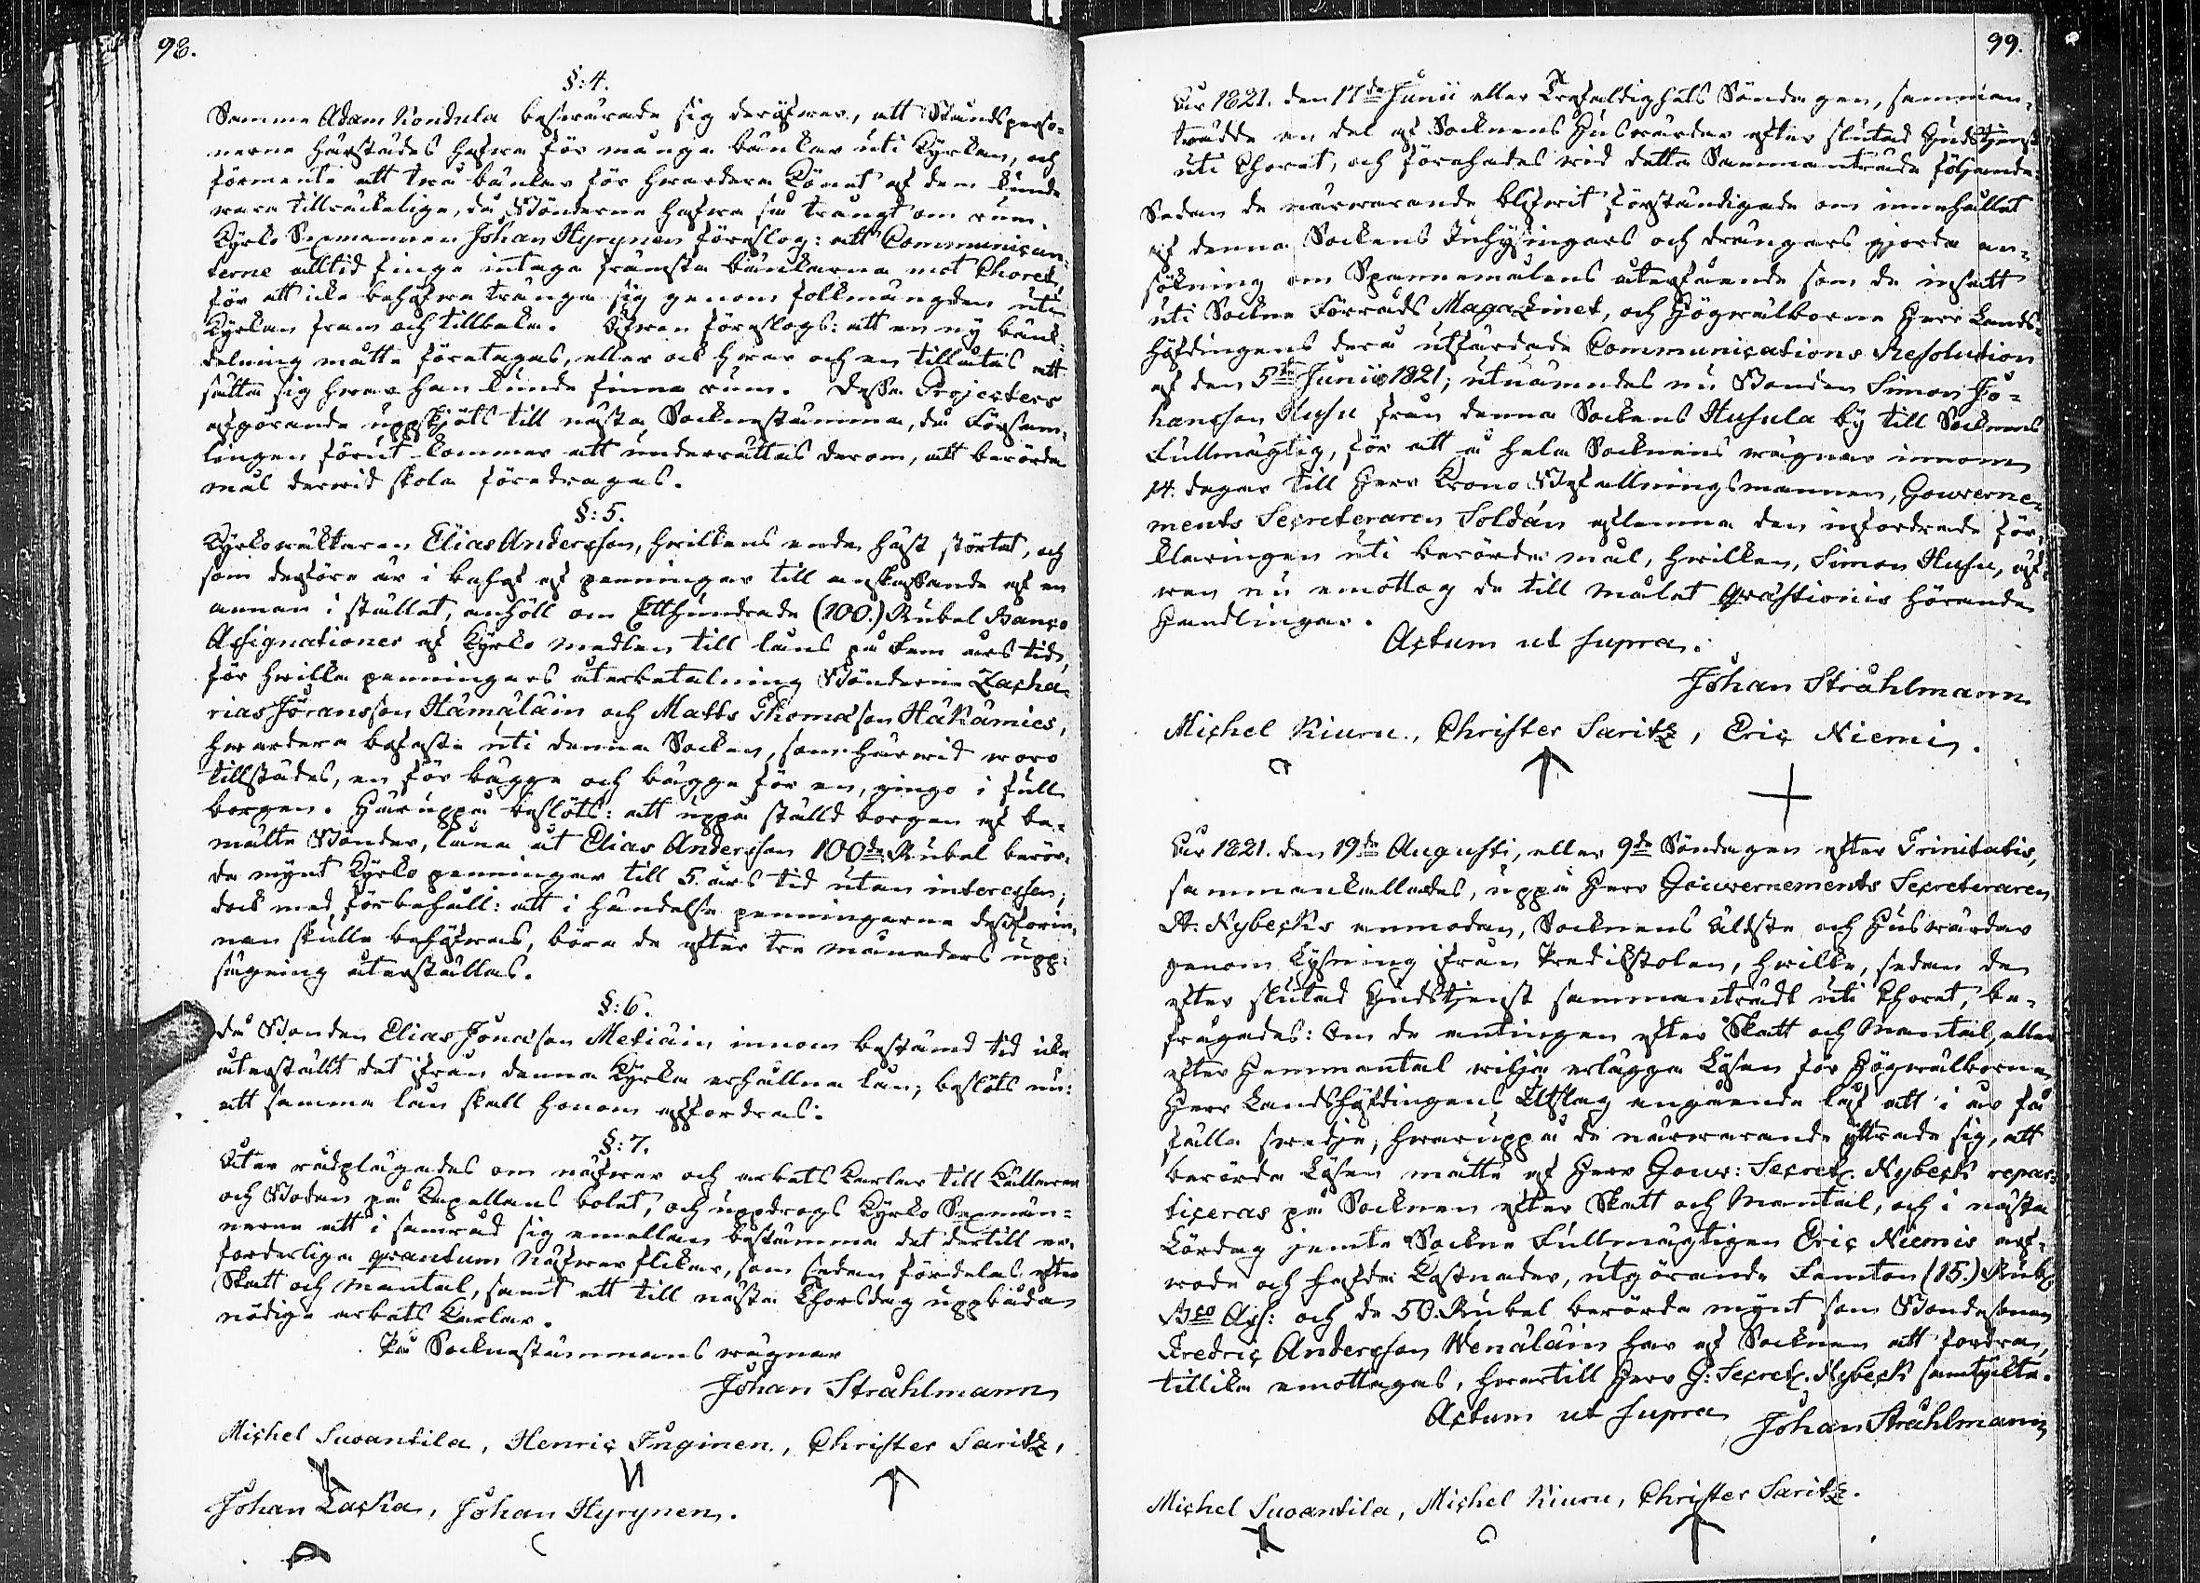 98.
§:4.
Samme Adam Kondula beswärade sig deröfwer, att Ståndsperso-
nerne härstädes hafwa för många bänkar uti Kyrkan, och
förmente att två bänkar för hwardera Könet af dem kunde
wara tillräckelige, då Bönderne hafwa så trångt om rum.
Kyrko Sexmannen Johan Hyrynen föreslog: att Communican-
terne alltid finge intaga främsta bänkarna mot Choret,
för att icke behöfwa tränga sig genom folkmängden uti
Kyrkan fram och tillbaka. Äfwen föreslogs: att en ny bänk-
delning måtte företagas, eller ock hwar och en tillåtas att
sätta sig hwar han kunde finna rum. Dessa Projecters
afgörande uppsköts till nästa Socknestämma, då Försam-
lingen förut kommer att underrättas derom, att berörde
mål derwid skola föredragas.
§:5.
Kyrkowäktaren Elias Andersson, hwilkens enda häst störtat, och
som derföre är i behof af penningar till anskaffande af en
annan i stället, anhöll om Etthundrade (100.) Rubel Banco
Assignationer af Kyrko medlen till låns på fem års tid,
för hwilka penningars återbetalning Bönderne Zacha-
rias Jöransson Hämäläin och Matts Thomasson Häkämies,
hwardera bofaste uti denna Socken, som härwid woro
tillstädes, en för bägge och bägge för en, gingo i full
borgen. Häruppå beslöts: att uppå ställd borgen af be-
mälte Bönder, låna åt Elias Andersson 100de Rubel berör-
de mynt Kyrko penningar till 5. års tid utan interessen,
dock med förbehåll: att i händelse penningarne dessförin-
nan skulle behöfwas, böra de efter tre månaders upp-
sägning återställas.
§:6.
Då Bonden Elias Jonasson Metiäin innom bestämd tid icke
återställt det ifrån denna Kyrka erhållna lån; beslöts nu:
att samma lån skall honom affordras.
§:7.
Åter rådplägades om näfwer och arbets Karlar till Källaren
och Boden på Capellans bolet, och uppdrogs Kyrko Sexmän-
nerne att i samråd sig emellan bestämma det dertill er-
forderliga quantum Näfwer flikar, som sedan fördelas efter
Skatt och Mantal, samt att till nästa Thorsdag uppbåda
nödige arbets Karlar.
På Socknestämmans wägnar
Johan Stråhlmann
Michel Suvantila, Henric Inginen, Christer Saritz,
Johan Laska, Johan Hyrynen.
99.
År 1821. den 17de Junii eller Trefaldighets Söndagen, samman-
trädde en del af Socknens Huswärdar efter slutad Gudstjenst
uti Choret, och förehades wid detta Sammanträde följande:
Sedan de närwarande blifwit förständigade om innehållet
af denna Sockens Inhysingars och drängars gjorda an-
sökning om Spannemålens återfående som de insatt
uti Sockne Förråds Magazinet, och Högwälborne Herr Lands-
höfdingens derå utfärdade Communications Resolution
af den 5te Junii 1821; utnämndes nu Bonden Simon Jo-
hansson Husu från denna Sockens Husula by till Socknens
Fullmägtig, för att å hela Socknens wägnar innom
14. dagar till Herr Krono Befallningsmannen, Gouverne-
ments Secreteraren Soldán aflemna den infordrade för-
klaringen uti berörde mål, hwilken, Simon Husu, äf-
wen nu emottog de till målet Quæstionis hörande
Handlingar.
Actum ut supra.
Johan Stråhlmann
Michel Kiuru, Christer Saritz, Eric Niemi.
År 1821. den 19de Augusti, eller 9de Söndagen efter Trinitatis,
sammankallades, uppå Herr Gouvernements Secreteraren
A. Nybecks anmodan, Socknens Äldste och Huswärdar
genom Lysning ifrån Predikstolen, hwilke, sedan de
efter slutad Gudstjenst sammanträdt uti Choret, be-
frågades: Om de antingen efter Skatt och Mantal, eller
efter Hemmantal wilja erlägga Lösen för Högwälborne
Herr Landshöfdingens Utslag angående lof att i år få
fälla swedje, hwaruppå de närwarande yttrade sig, att
berörde Lösen måtte af Herr Gouv: Secret. Nybeck repar-
ticeras på Socknen efter Skatt och Mantal, och i nästa
Lördag jemte Sockne Fullmägtigen Eric Niemis arf-
wode och hafde Kostnader, utgörande Femton (15.) Rub.
Bco Ass: och de 50. Rubel berörde mynt som Bondesonen
Fredric Andersson Wenäläin har af Socknen att fordra,
tillika emottagas, hwartill Herr G: Secret. Nybeck samtyckte.
Actum ut supra Johan Stråhlmann
Michel Suvantila, Michel Kiuru, Christer Saritz.